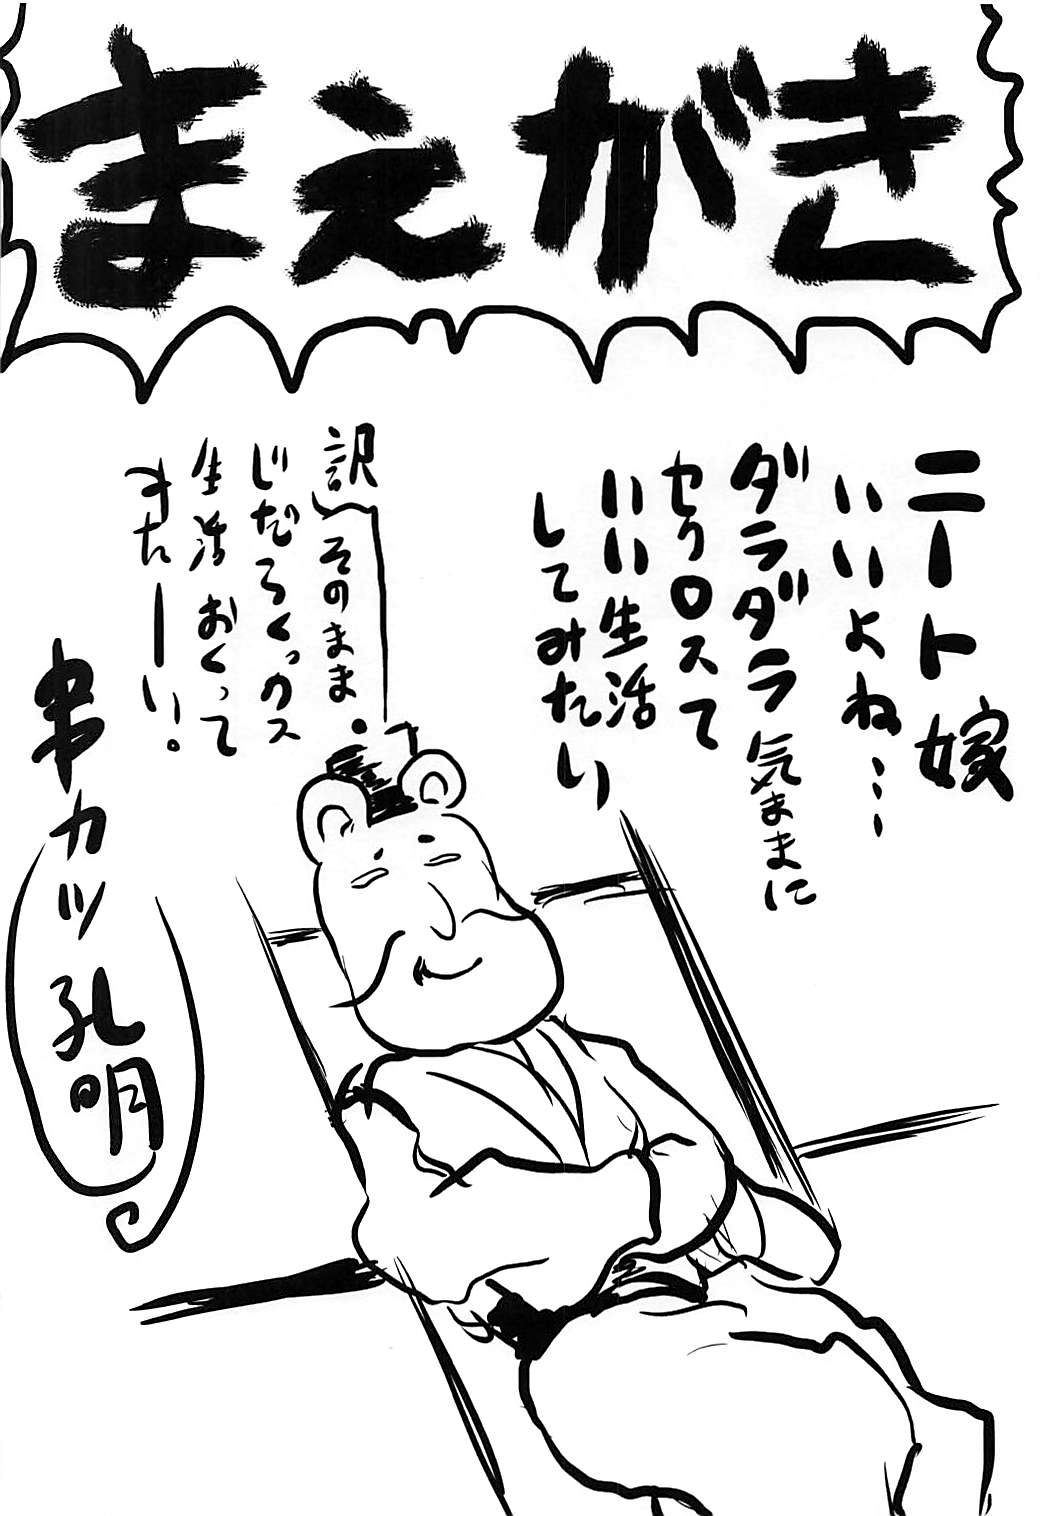 まえがき
ニート嫁
いいよね…
ダラダラ気ままに
セクロスて
いい生活
してみたい
訳そのまま
じだらくックス
生活おくって
すたーい!
串カツ孔明